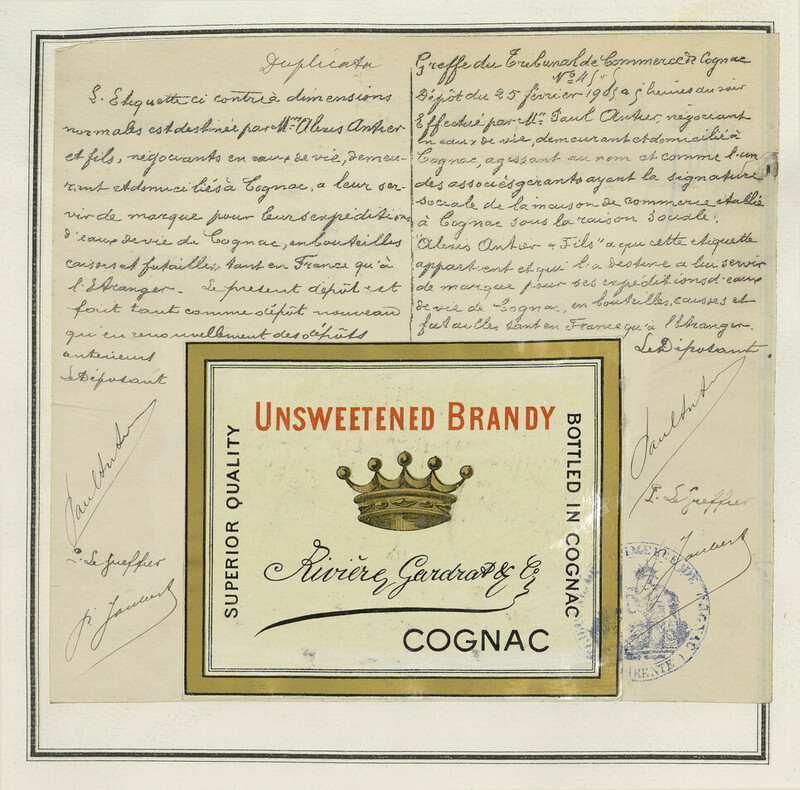 Duplicata
L'Etiquette ci contre à dimensions
normales est destinée par Mrs Alexis Antier
et fils, négociants en eaux de vie, demeu-
rant et domiciliés à Cognac, a leur ser-
vir de marque pour leurs expéditions
d'eaux de vie de Cognac, en bouteilles
caisses et futailles, tant en France qu'à
l'Etranger. Le présent dépôt est
fait tant comme dépôt nouveau
qu'en renouvellement des dépôts
antérieurs
Le Déposant
Paul Antier
P. Le Greffier
P. Joubert
Greffe du Tribunal de Commerce de Cognac
Dépôt du 25 février 1905 à 5 heures du soir
Effectué par Mr. Paul Antier, négociant
en eaux de vie, demeurant et domicilié à
Cognac, agissant au nom et comme l'un
des associés gérants ayant la signature
sociale de la maison de commerce établie
à Cognac sous la raison sociale:
"Alexis Antier & Fils" a qui cette étiquette
appartient et qui l'a destine a lui servir
de marque pour ses expéditions d'eaux
de vie de Cognac, en bouteilles, caisses et
futailles tant en France qu'à l'étranger.
Le Déposant
Paul Antier
P. Le Greffier
Joubert
UNSWEETENED BRANDY
SUPERIOR QUALITY
BOTTLED IN COGNAC
Rivière, Gardrat & Co
COGNAC